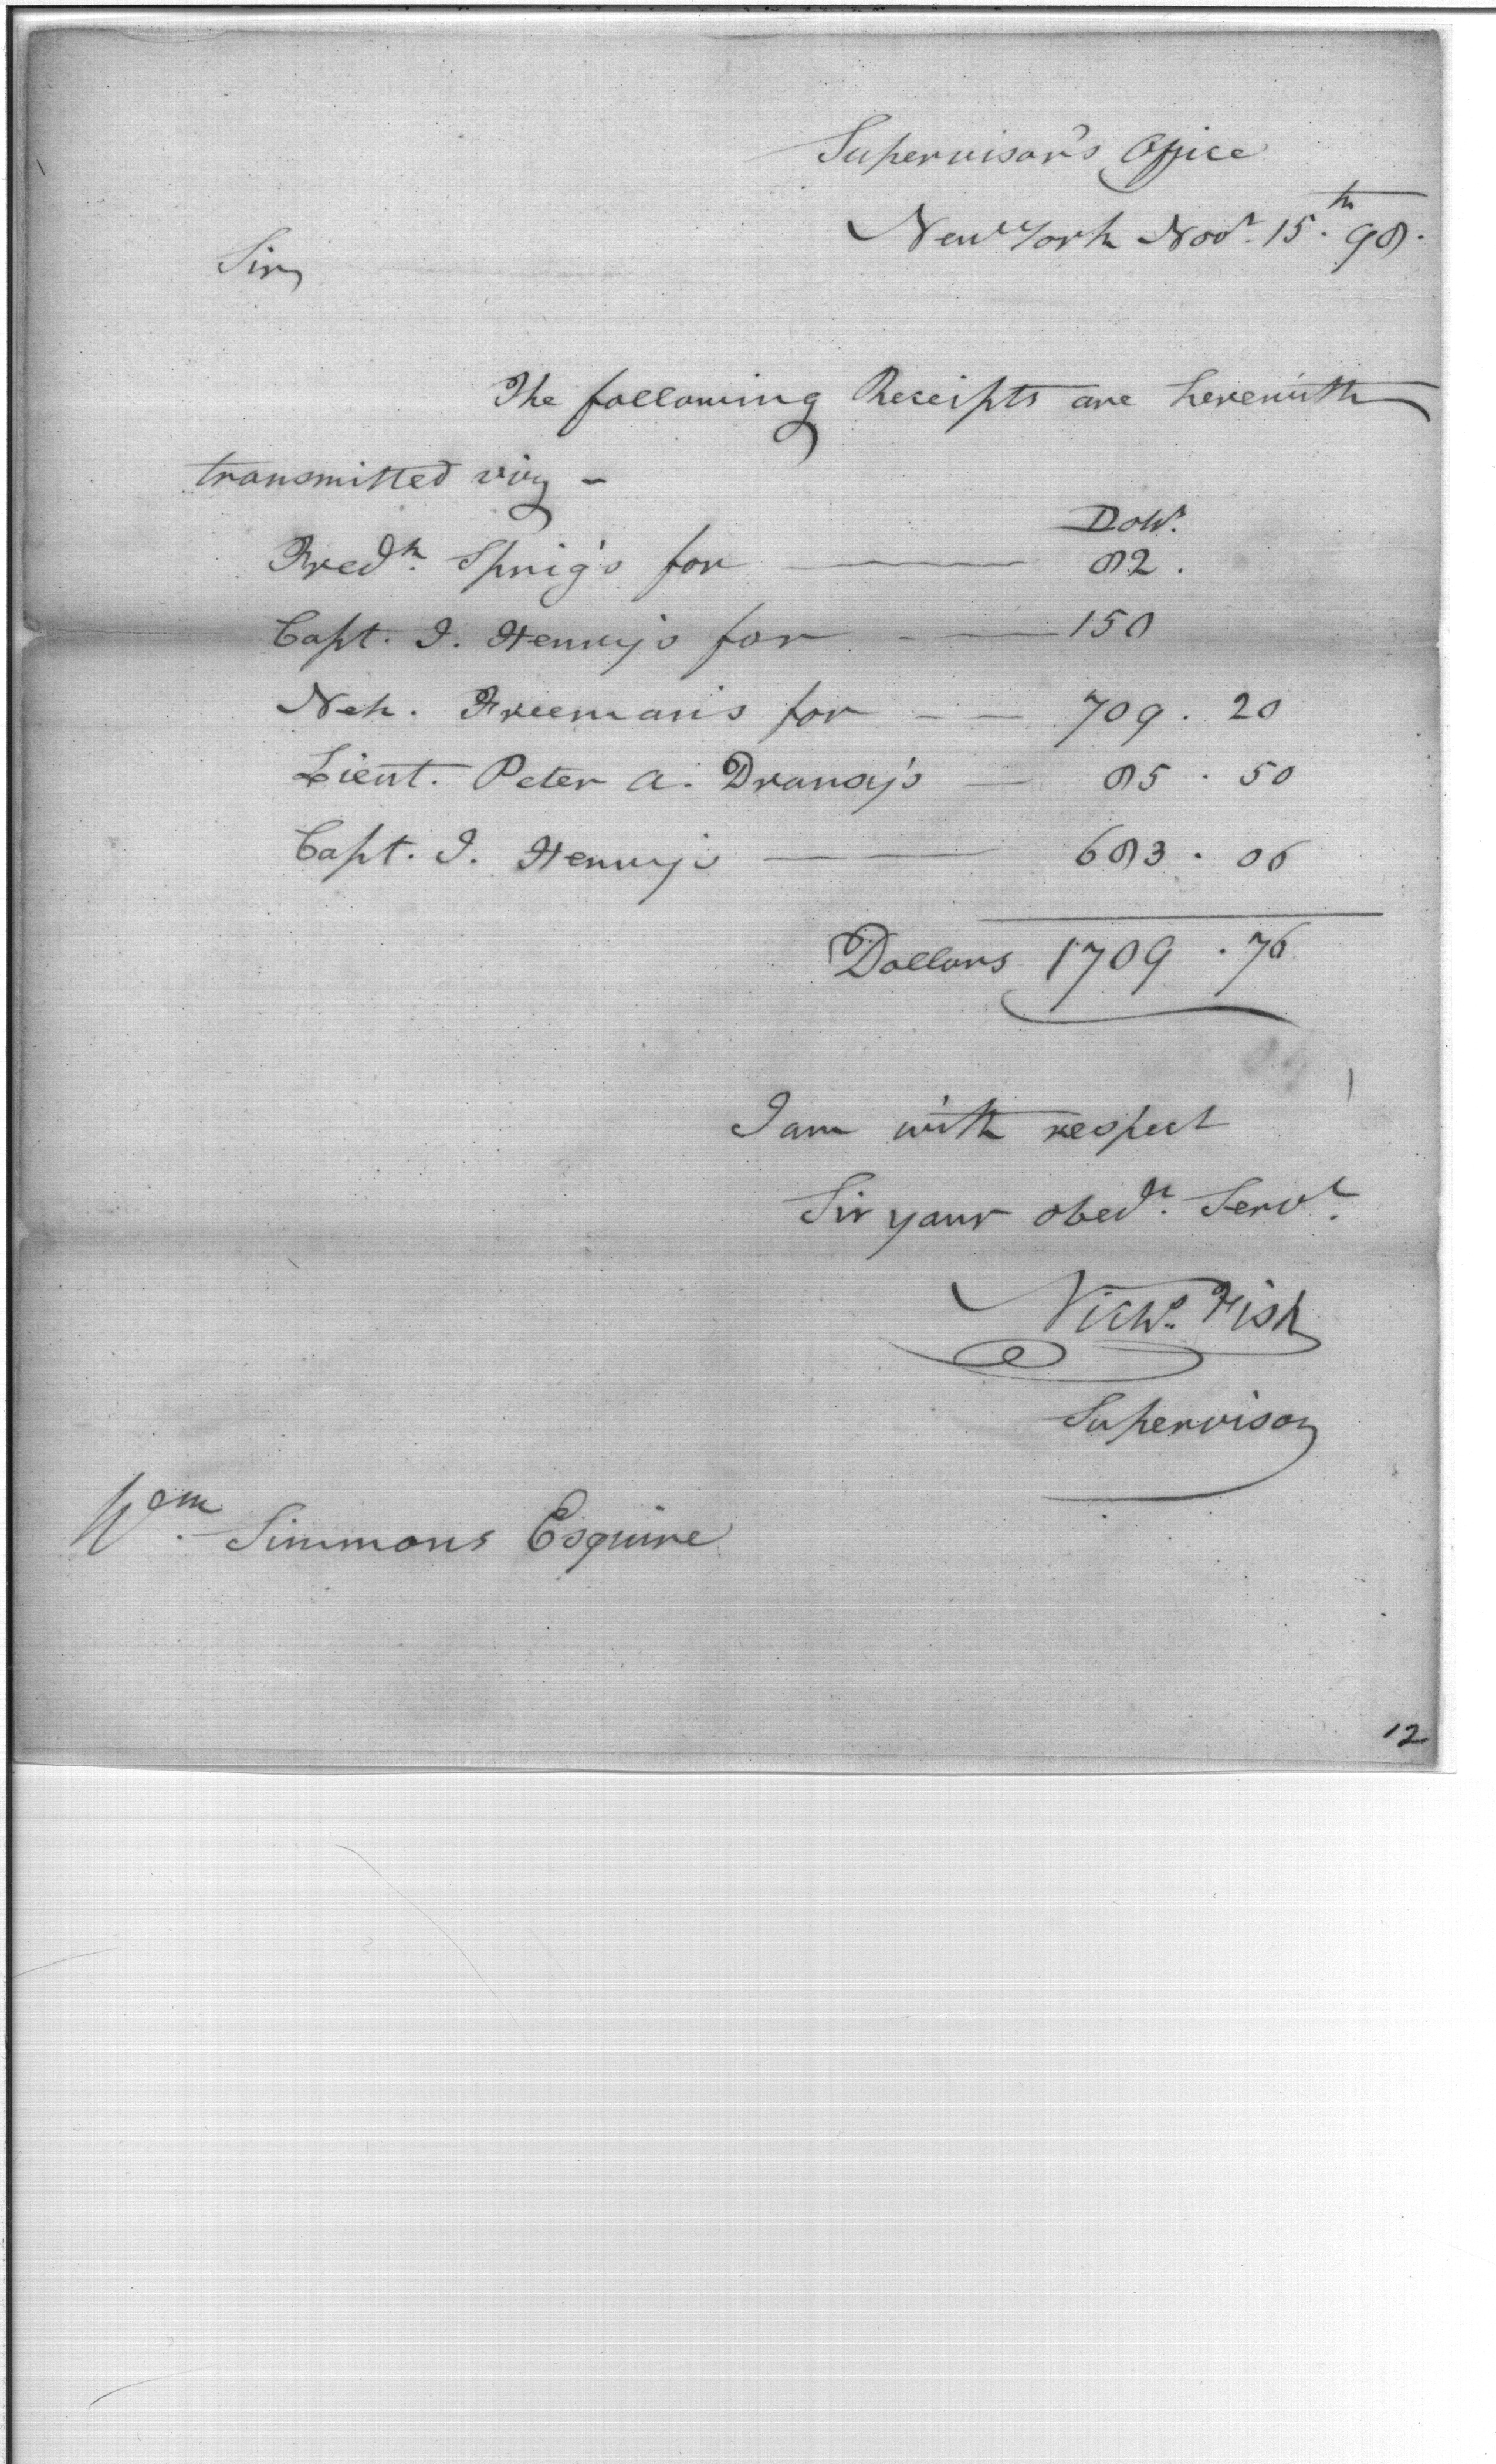 Supervisor's Office
New York Novr. 15th. 98.
Sir,
The following Receipts are herewith
transmitted viz -
Dolls.
Fredk. Sprig's for 82.
Capt. J. Henry's for 150
Neh. Freeman's for 709. 20
Lieut. Peter A. Dransy's 85. 50
Capt. J. Henry's 683. 06
Dollars 1709. 76
I am with respect
Sir your obedt. Servt.
Nichs. Fish
Supervisor
Wm. Simmons Esquire
12